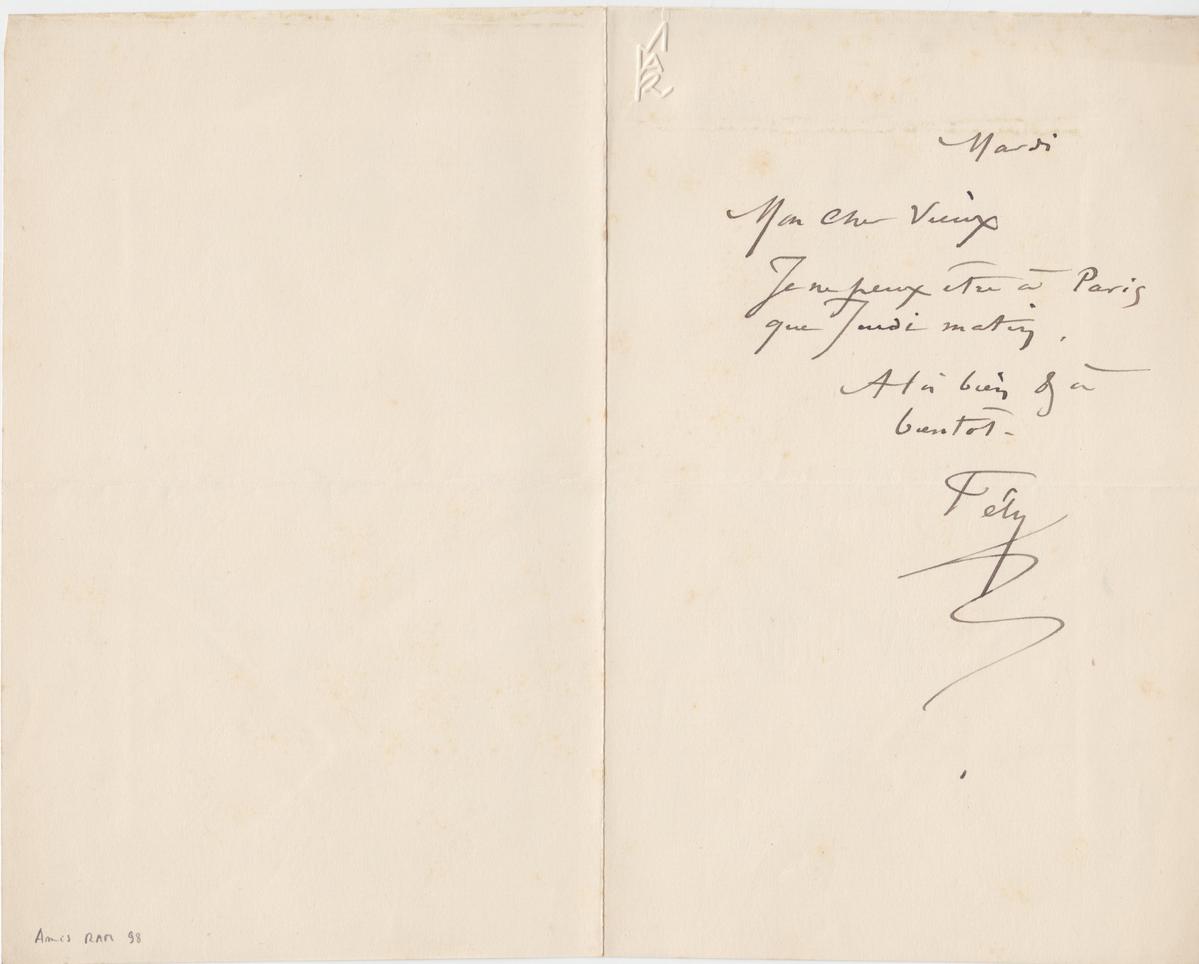 Mardi
Mon cher Vieux
Je ne peux être à Paris
que Jeudi matin.
A toi bien & à
bientôt-
Fély
Amis RAM 98